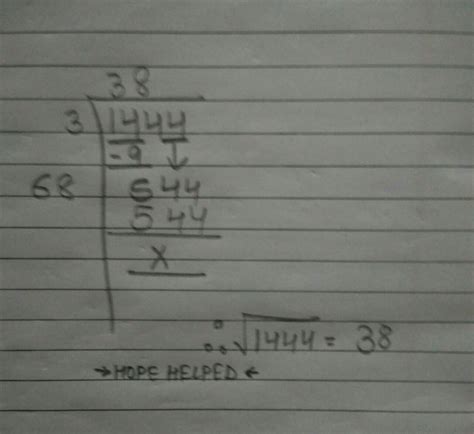 38
3 1444
-9 ↓
68 544
544
x
∴ √1444 = 38
→HOPE HELPED←